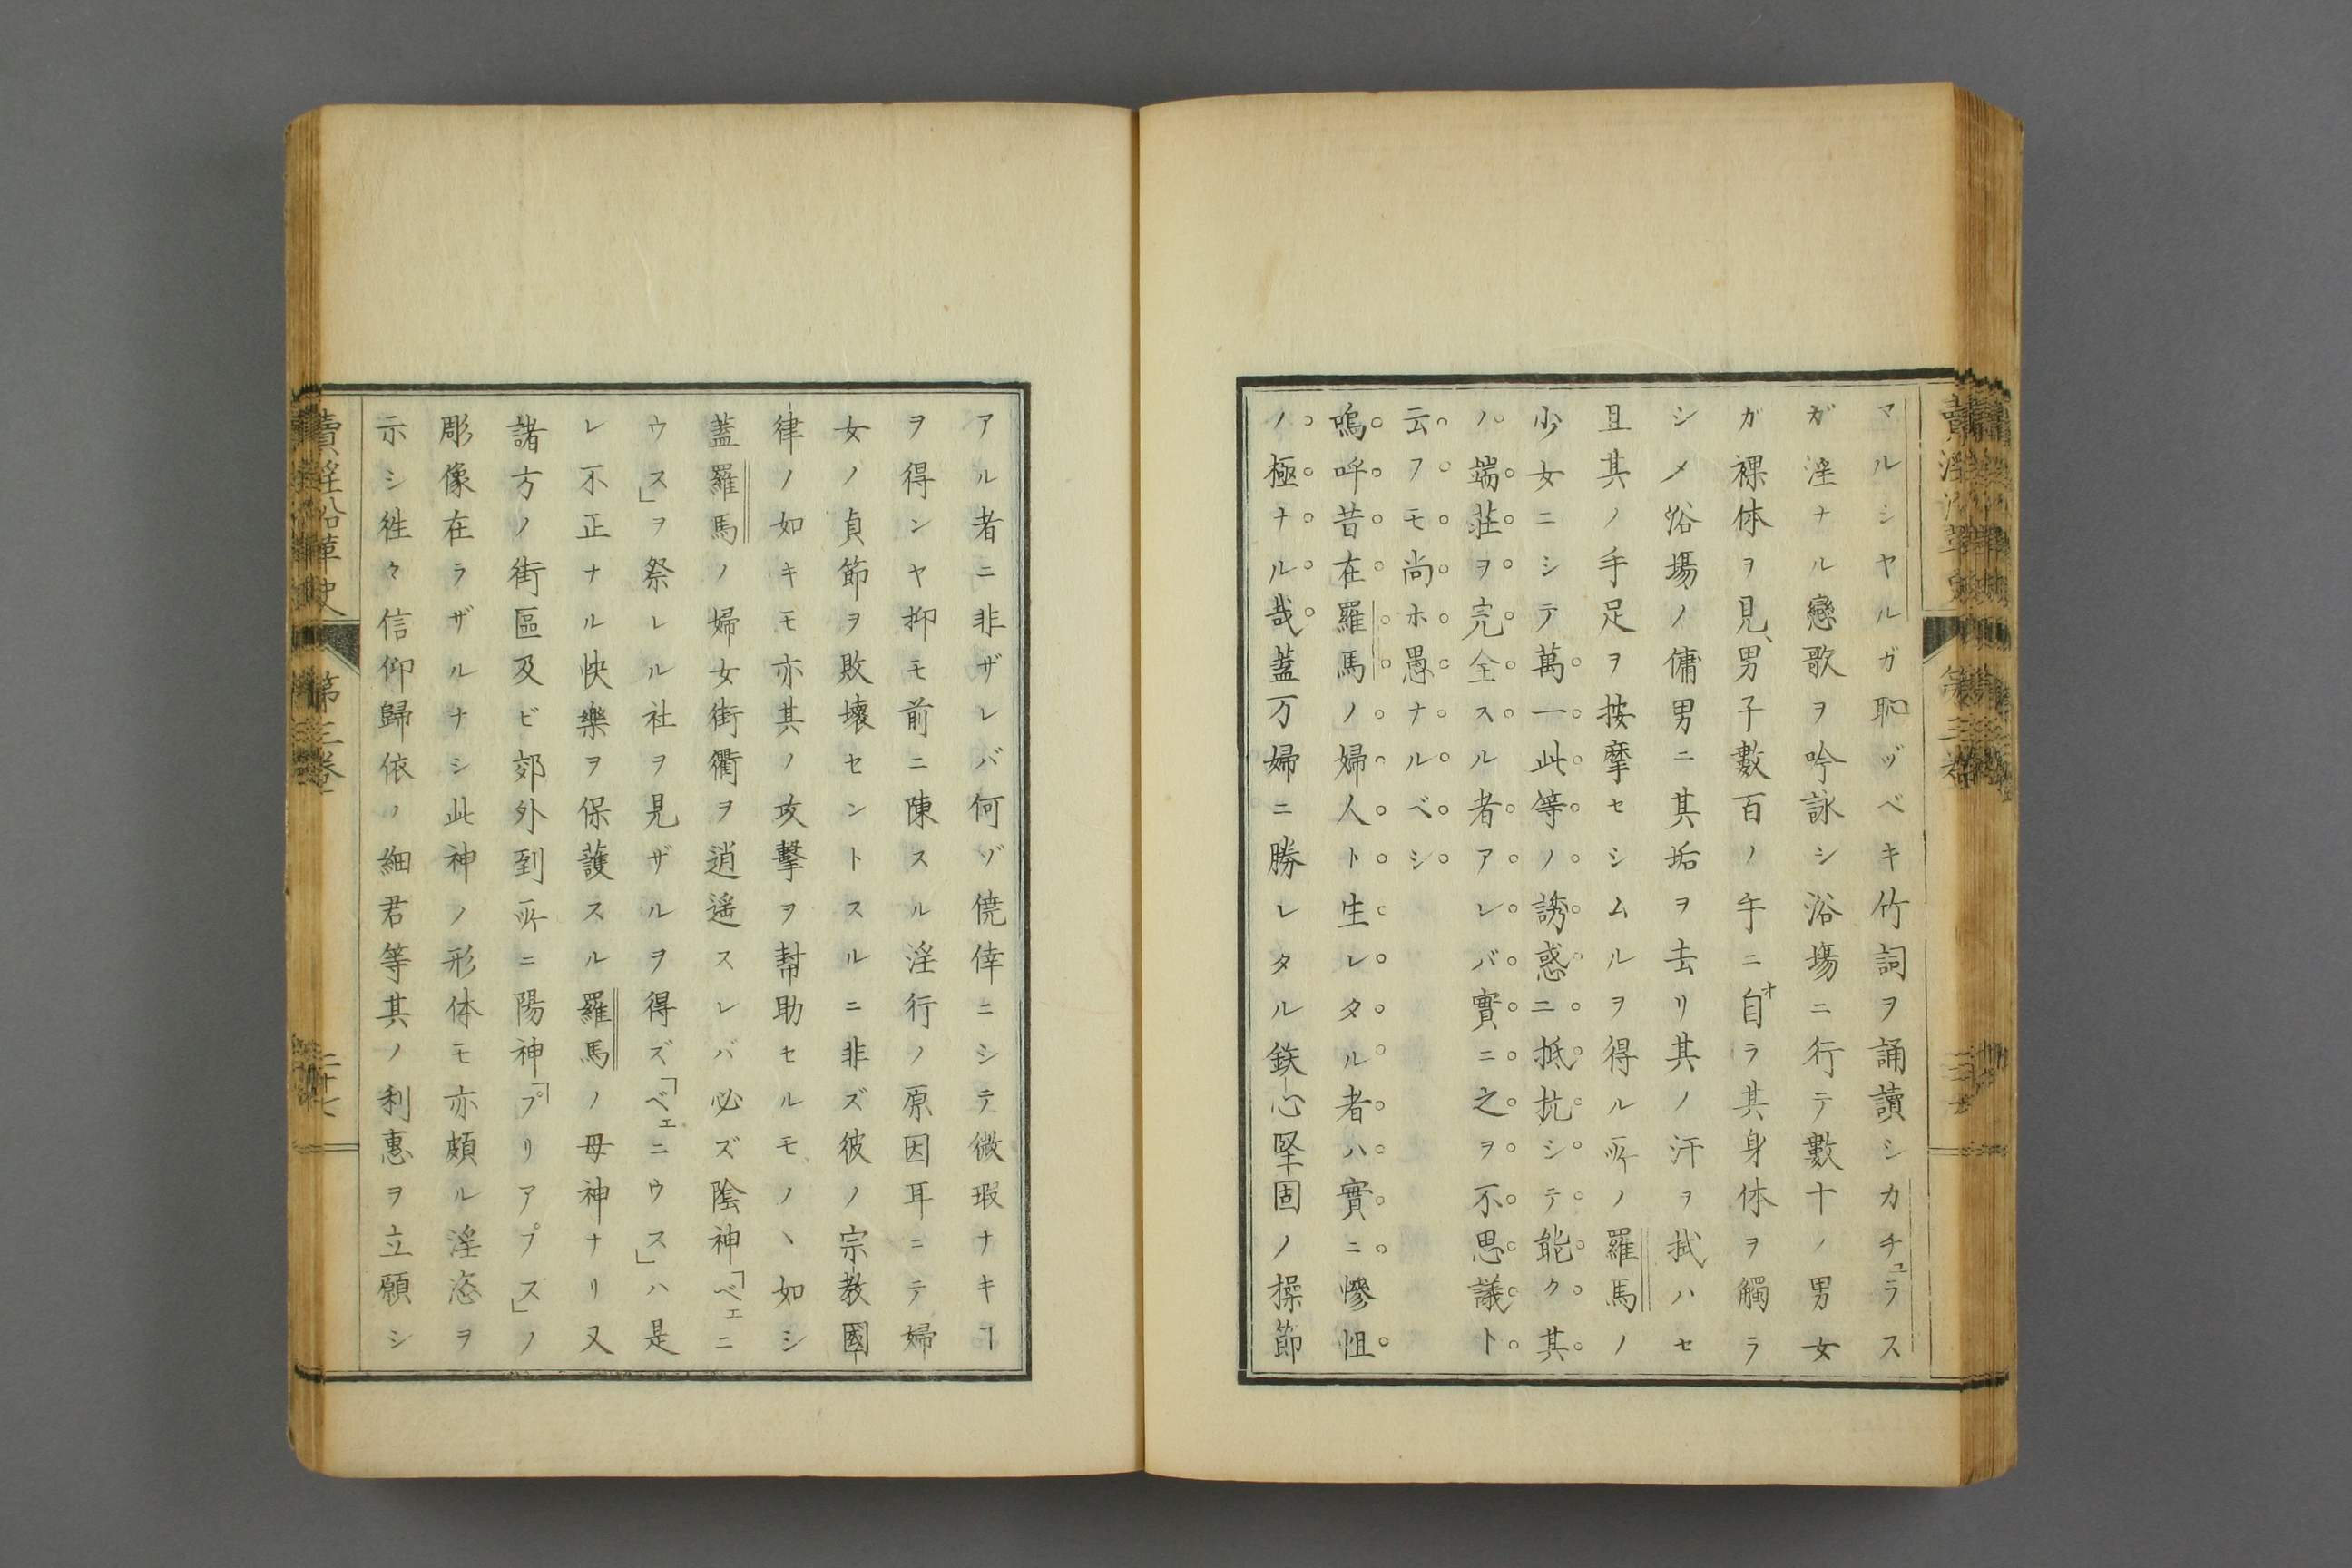 マルシヤルガ恥ヅベキ竹詞ヲ誦讀シカチュラス
ガ淫ナル戀歌ヲ吟詠シ浴塲ニ行テ數十ノ男女
ガ裸体ヲ見、男子數百ノ午ニ自オラ其身体ヲ觸ラ
シメ浴塲ノ傭男ニ其垢ヲ去リ其ノ汗ヲ拭ハセ
且其ノ手足ヲ按摩セシムルヲ得ル所ノ羅馬ノ
少女ニシテ萬一此等ノ誘惑ニ抵抗シテ能ク其
ノ端莊ヲ完全スル者アレバ實ニ之ヲ不思議ト
云フモ尚ホ愚ナルベシ
嗚呼昔在羅馬ノ婦人ト生レタル者ハ實ニ慘怛
ノ極ナル哉蓋万婦ニ勝レタル鉄心堅固ノ操節
アル者ニ非ザレバ何ゾ僥倖ニシテ微瑕ナキヿ
ヲ得ンヤ抑モ前ニ陳スル淫行ノ原因耳ニテ婦
女ノ貞節ヲ敗壞セントスルニ非ズ彼ノ宗教國
律ノ如キモ亦其ノ攻擊ヲ幇助セルモノヽ如シ
蓋羅馬ノ婦女街衢ヲ逍遙スレバ必ズ陰神「ベェニ
ウス」ヲ祭レル社ヲ見ザルヲ得ズ「ベェニウス」ハ是
レ不正ナル快樂ヲ保護スル羅馬ノ母神ナリ又
諸方ノ街區及ビ郊外到所ニ陽神「プリアプス」ノ
彫像在ラザルナシ此神ノ形体モ亦頗ル淫恣ヲ
示シ徃々信仰歸依ノ細君等其ノ利惠ヲ立願シ
賣淫沿革史 第三卷 二十七